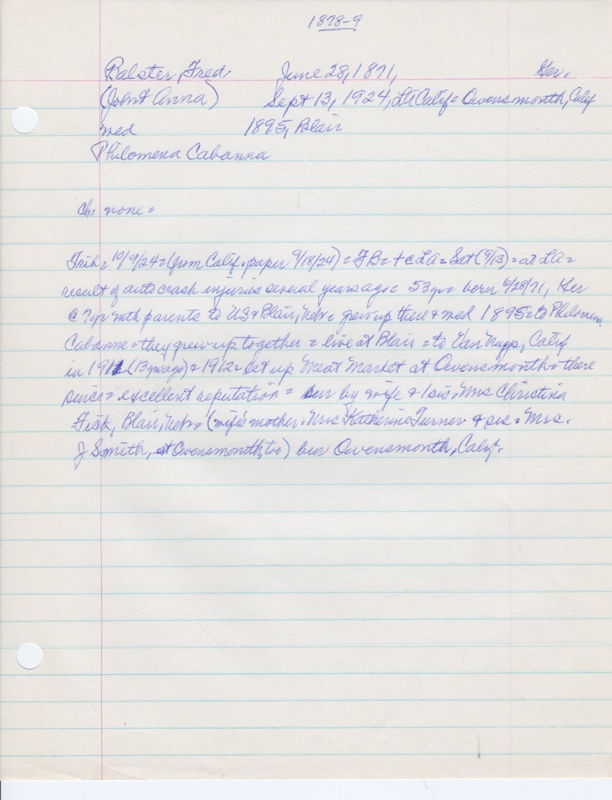 1878-9
Balster, Fred June 28, 1871, Ger.
(John & Anna) Sept 13, 1924, LA Calif = Owensmonth, Calif
wed 1895, Blair
Philomena Cabanna
Ch: none =
Trib = 10/9/24 = (from Calif. paper 9/18/24) = FB = + @ LA = Sat (9/13) = at LA =
result of auto crash injuries several years ago = 53 yr = born 6/28/71, Ger
@ 7 yr with parents to US & Blair, Nebr = grew up there & wed 1895 = to Philomena
Cabanne = they grew up together = live at Blair = to Van Nuys, Calif
in 1911 (13 yr ago) & 1912 = set up Meat Market at Owensmonth = there
since = excellent reputation = sur by wife & 1 sis = Mrs Christina
Fisk, Blair, Nebr = (wife's mother = Mrs Katherine Turner & sis = Mrs.
J Smith, at Owensmonth, too) bur Owensmonth, Calif.